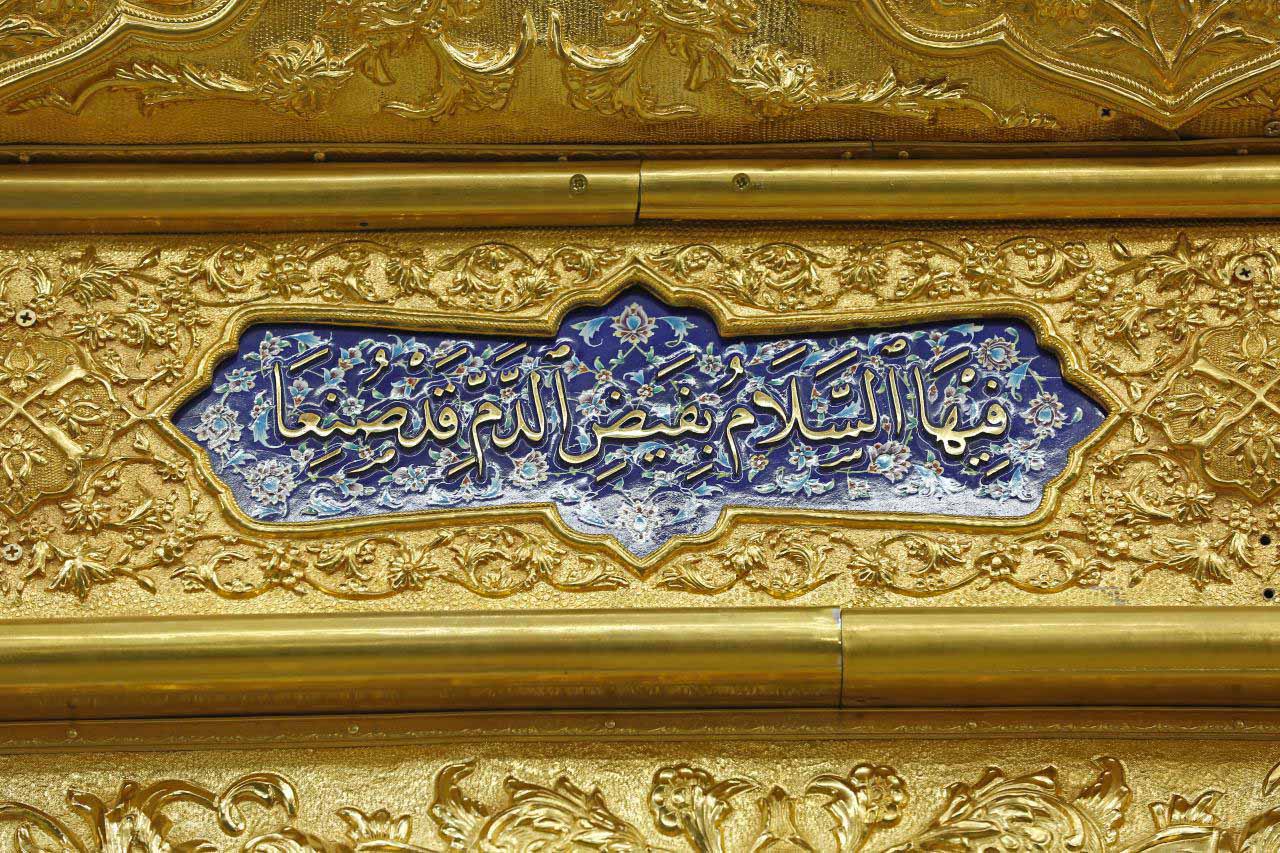 فِيْهَا ٱلسَّلَامُ بِفَيَضِ ٱلدَّمِّ قَدْ صُنِعَا